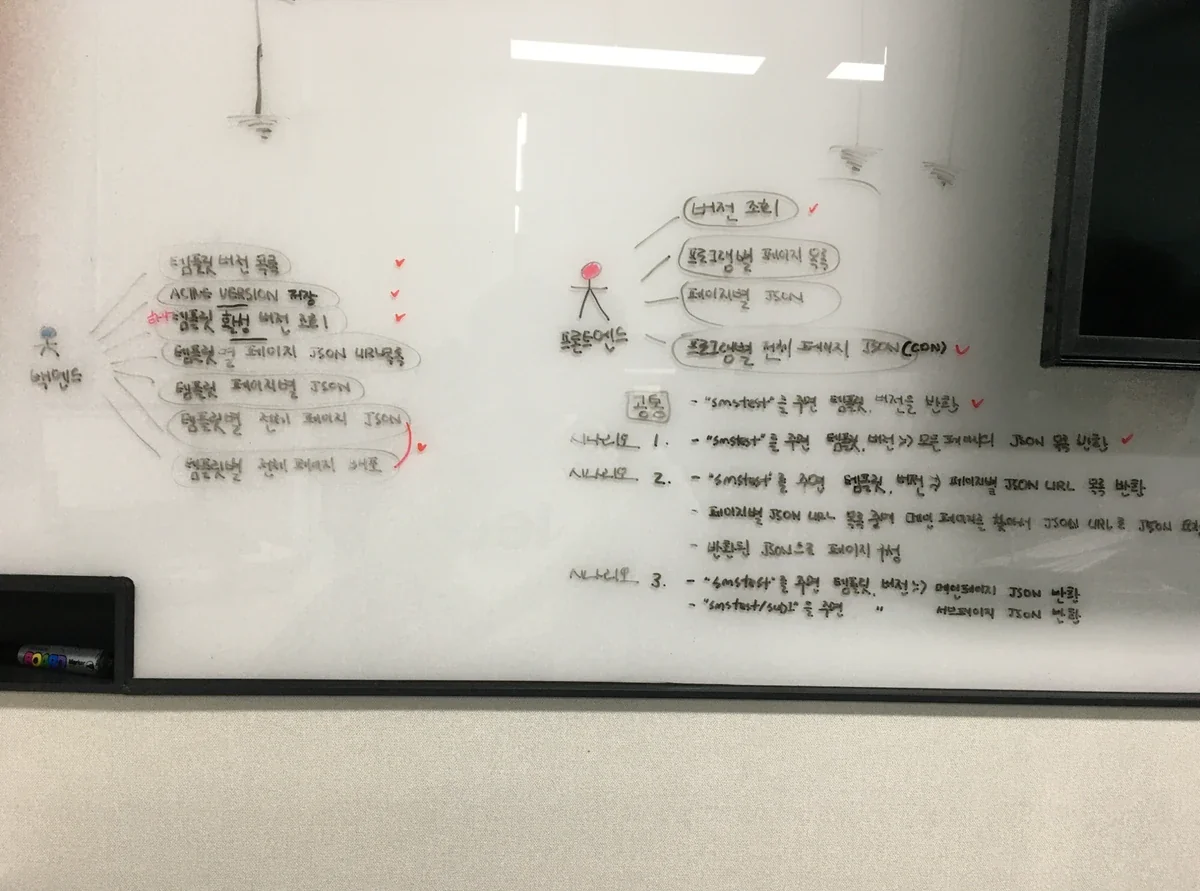 템플릿 버전 목록
ACTIVE VERSION 저장
템플릿 활성 버전 조회
템플릿별 페이지 JSON URL목록
템플릿 페이지별 JSON
템플릿별 전체 페이지 JSON
템플릿별 전체 페이지 배포
백엔드
버전 조회
프로그램별 페이지 목록
페이지별 JSON
프로그램별 전체 페이지 JSON(CDN)
프론트엔드
공통 - "smstest"를 주면 템플릿, 버전을 반환
시나리오 1. - "smstest"를 주면 템플릿, 버전 모든 페이지의 JSON 목록 반환
시나리오 2. - "smstest"를 주면 템플릿, 버전 페이지별 JSON URL 목록 반환
- 페이지별 JSON URL 목록 중에 메인 페이지를 찾아서 JSON URL로 JSON
- 반환된 JSON으로 페이지 구성
시나리오 3. - "smstest"를 주면 템플릿, 버전 메인페이지 JSON 반환
- "smstest/sub1"을 주면 " 서브페이지 JSON 반환